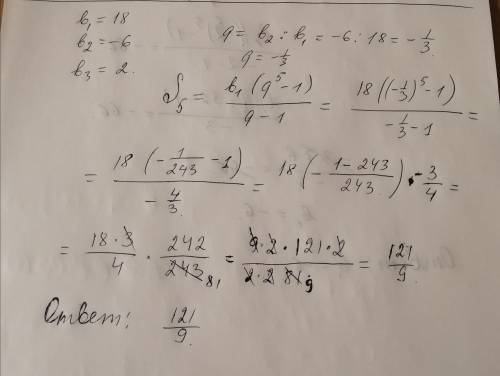 b₁ = 18
b₂ = -6    q = b₂ : b₁ = -6 : 18 = -1/3.
b₃ = 2.    q = -1/3
S₅ = b₁(q⁵ - 1)/(q - 1) = 18((-1/3)⁵ - 1)/(-1/3 - 1) =
= 18(-1/243 - 1)/(-4/3.) = 18(-(1 - 243)/243) · -3/4 =
= (18 · 3)/4 · 242/243 81 = (9 · 2 · 121 · 2)/(2 · 2 81 9) = 121/9.
Ответ: 121/9.